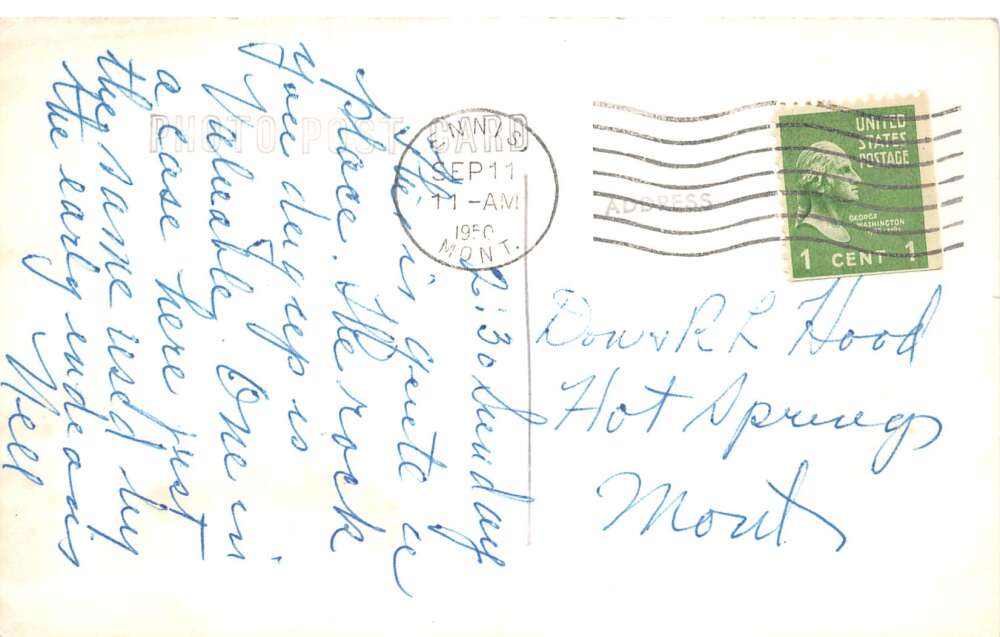 PHOTO POST CARD
ENNIS
SEP 11
11-AM
1950
MONT.
ADDRESS
UNITED
STATES
POSTAGE
GEORGE
WASHINGTON
1 CENT 1
2:30 Sunday
This is quite a
place. The rock
you dug up is
valuable. One in
a case here just
the same used by
the early indeans
Nell
Dow & R L Hood
Hot Springs
Mont